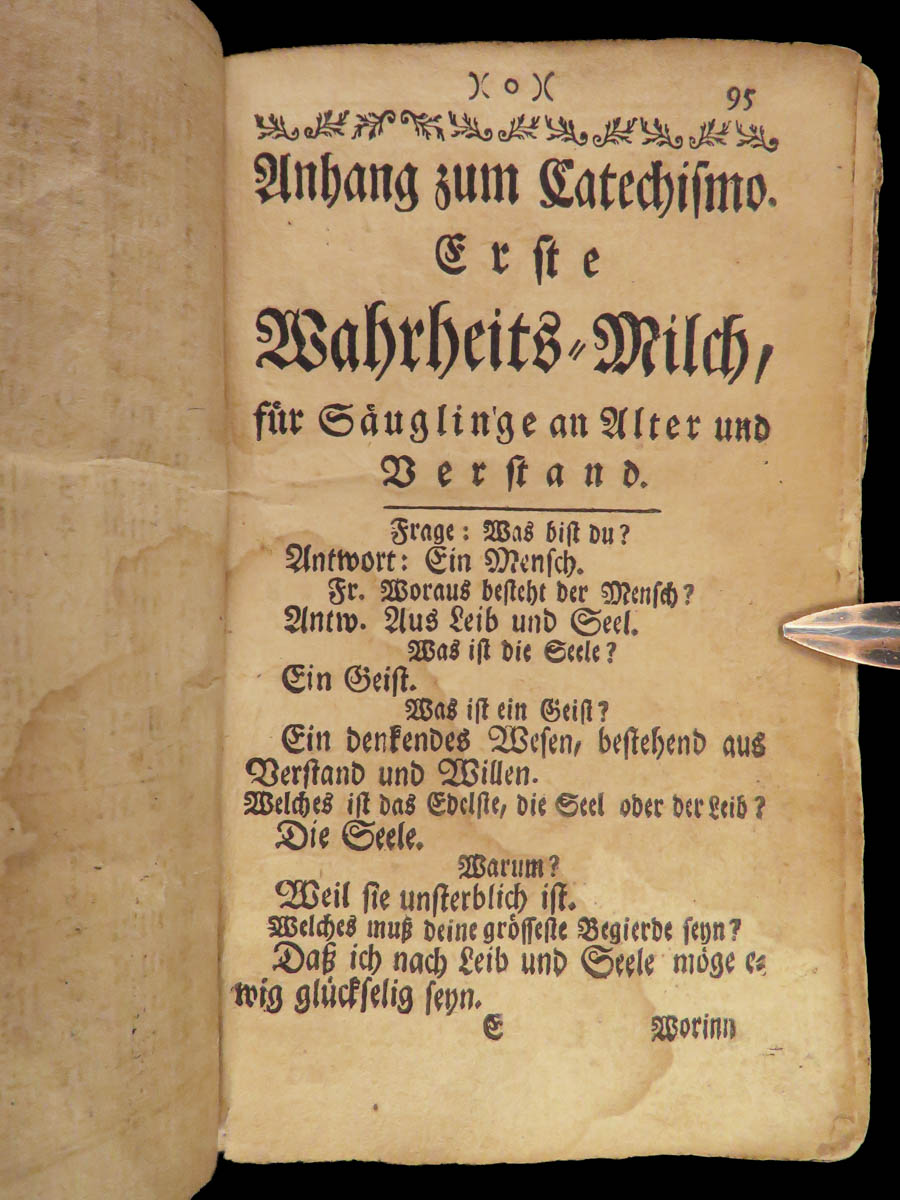 )( o )(
95
Anhang zum Catechismo.
Erste
Wahrheits-Milch,
für Säuglinge an Alter und
Verstand.
Frage: Was bist du?
Antwort: Ein Mensch.
Fr. Woraus besteht der Mensch?
Antw. Aus Leib und Seel.
Was ist die Seele?
Ein Geist.
Was ist ein Geist?
Ein denkendes Wesen, bestehend aus
Verstand und Willen.
Welches ist das Edelste, die Seel oder der Leib?
Die Seele.
Warum?
Weil sie unsterblich ist.
Welches muß deine grösseste Begierde seyn?
Daß ich nach Leib und Seele möge e-
wig glückselig seyn.
E
Worinn